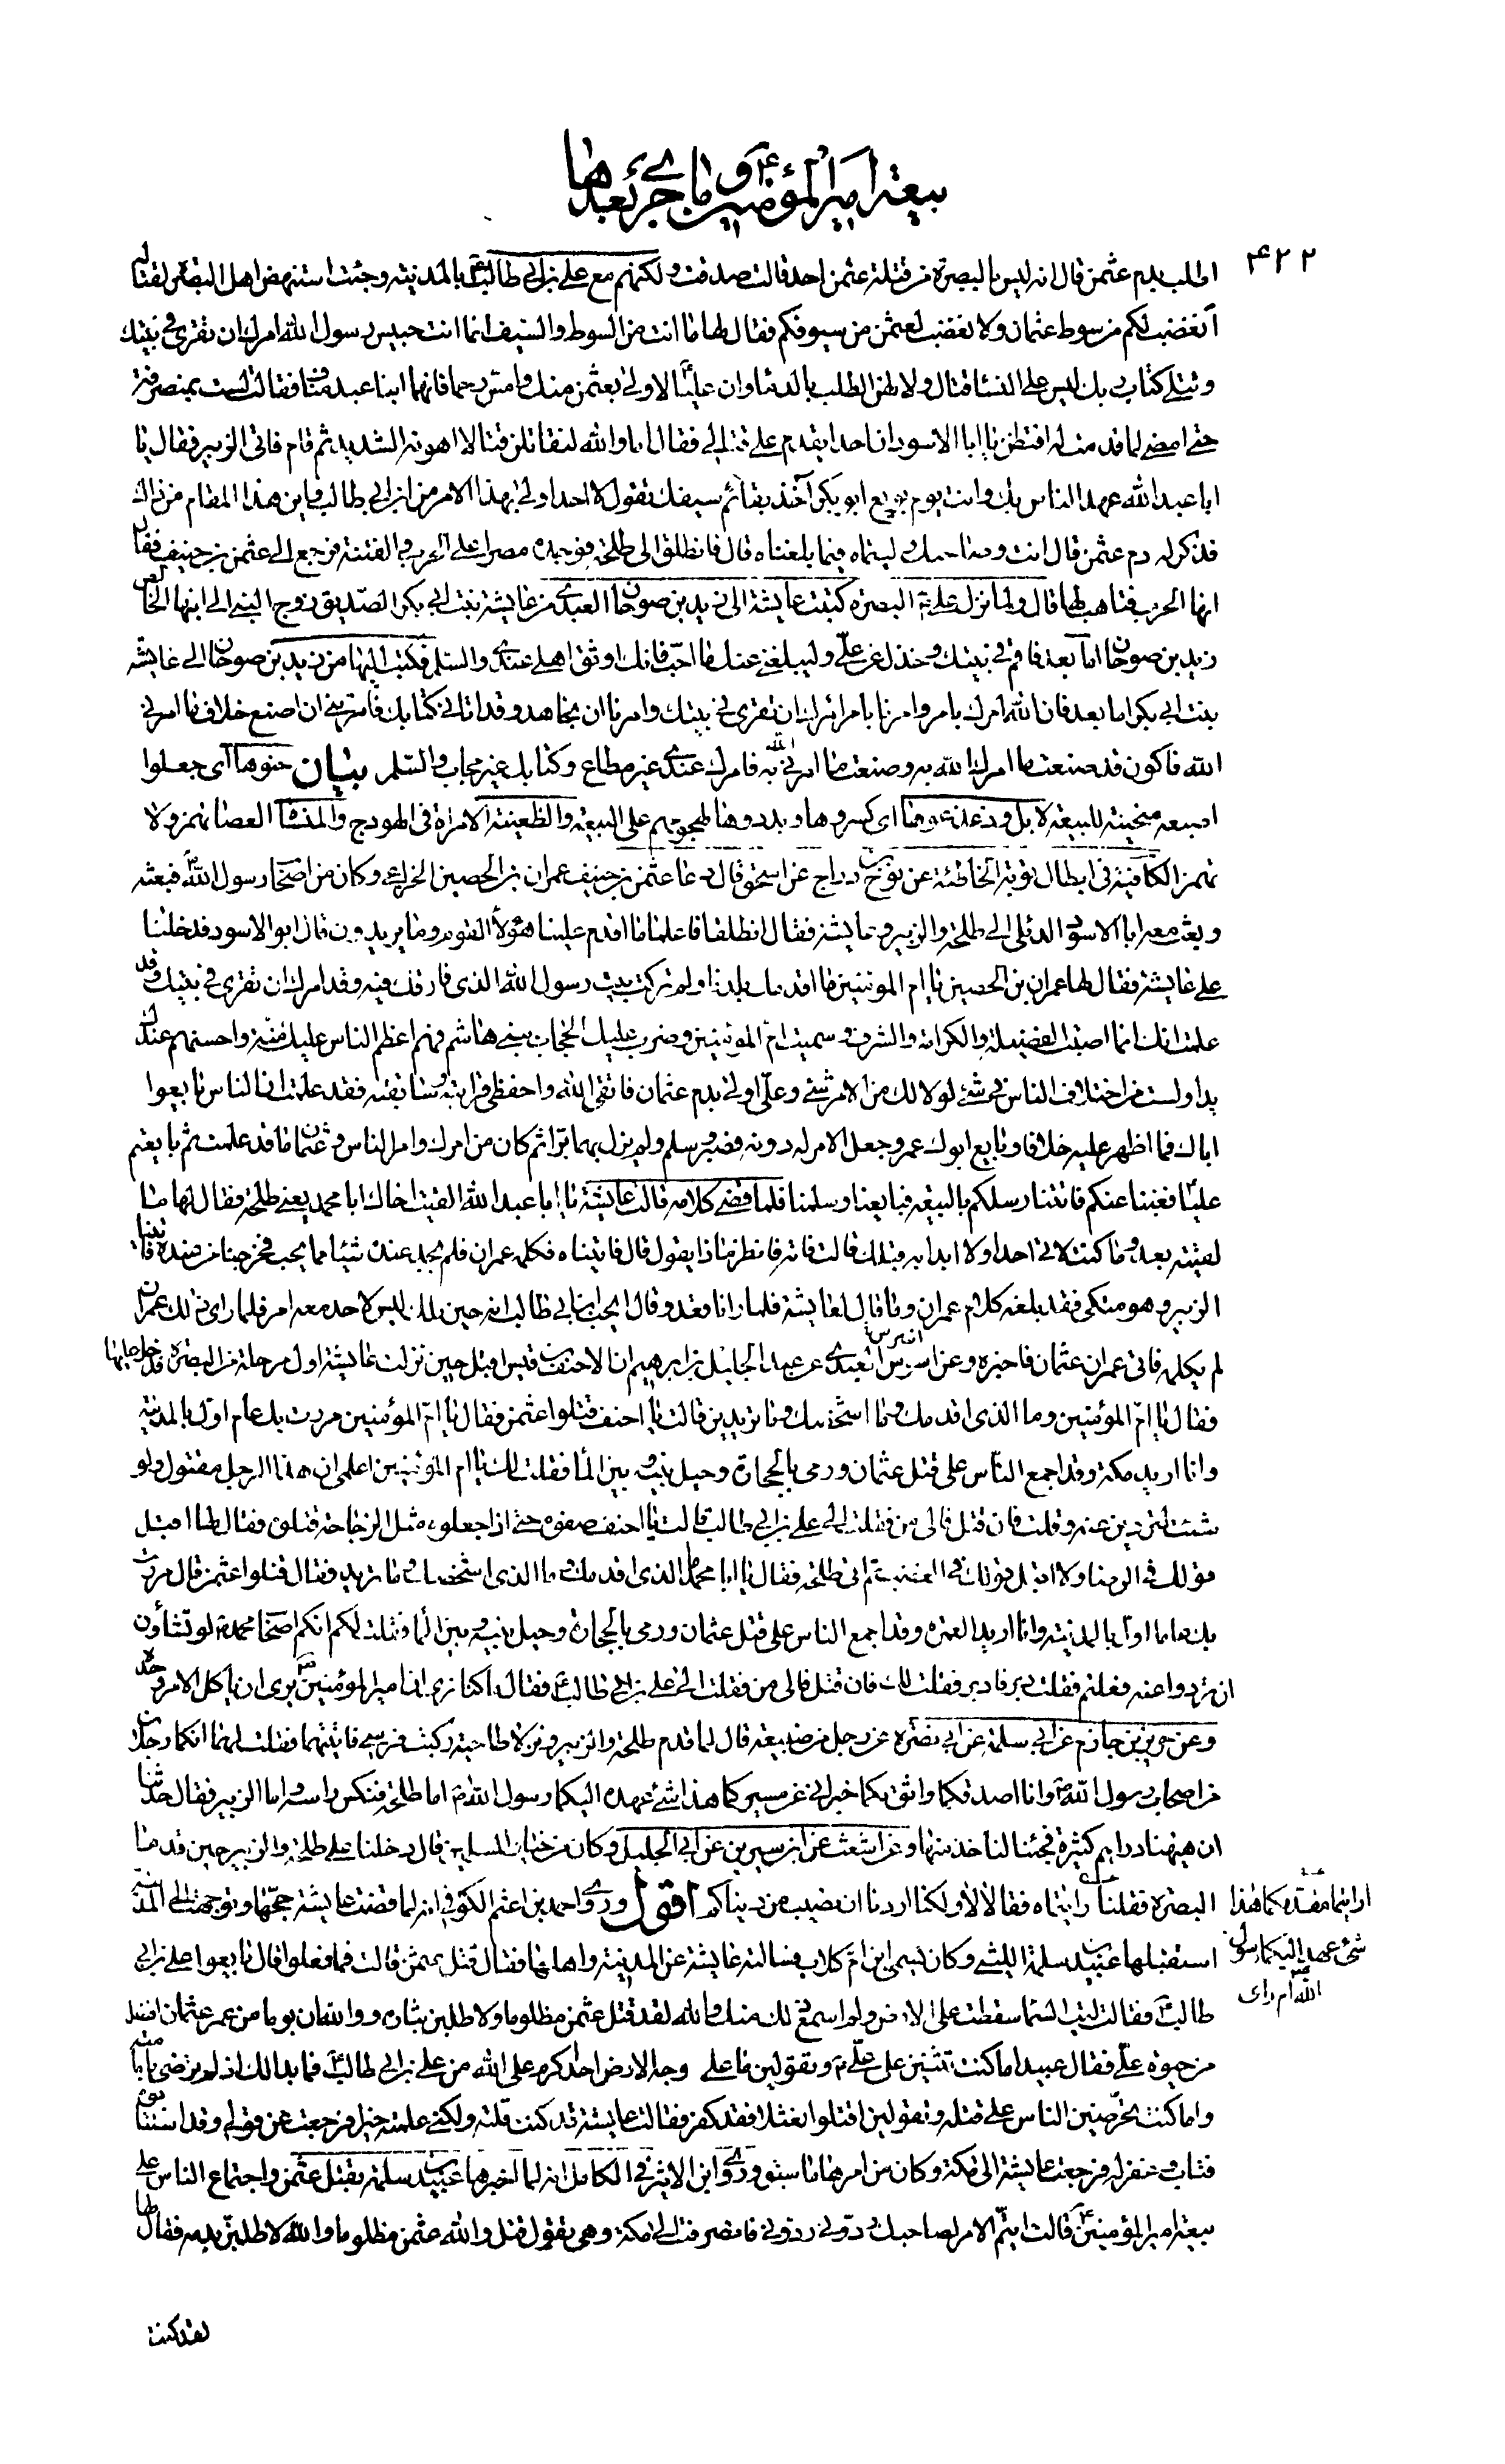 بيعة امير المؤمنين ع وما جرى بعدها
۴۲۲
اطلب بدم عثمن قال انه ليس بالبصرة من قتلة عثمن احد قالت صدقت ولكنهم مع علي بن ابي طالب ع بالمدينة وجئت استنهض اهل البصرة لقتاله
أنغضب لكم من سوط عثمان ولا نغضب لعثمن من سيوفكم فقال لها ما انت من السوط والسيف انما انت حبيس رسول الله امرك ان تقري في بيتك
وتتلي كتاب ربك ليس على النساء قتال ولا لهن الطلب بالدماء وان عليا لاولى بعثمن منك وامس رحما فانهما ابنا عبد مناف فقالت لست بمنصرفة
حتى امضي لما قدمت له افتظن يا ابا الاسود ان احدا يقدم على قتالي فقال اما والله لتقاتلن قتالا اهونه الشديد ثم قام فاتى الزبير فقال يا
ابا عبد الله عهد الناس بك وانت يوم بويع ابو بكر آخذ بقائم سيفك تقول لا احد اولى بهذا الامر من ابن ابي طالب فاين هذا المقام من ذاك
فذكر له دم عثمن قال انت وصاحبك وليتماه فيما بلغنا قال فانطلق الى طلحة فوجده مصرا على الحرب والفتنة فرجع الى عثمن بن حنيف فقال
انها الحرب فتاهب لها قال ولما نزل علي ع البصرة كتبت عايشة الى زيد بن صوحان العبدي من عايشة بنت ابي بكر الصديق زوج النبي الى ابنها الخالص
زيد بن صوحان اما بعد فاقم في بيتك وخذل عن علي وليبلغني عنك ما احب فانك اوثق اهلي عندي والسلم فكتب اليها من زيد بن صوحان الى عايشة
بنت ابي بكر اما بعد فان الله امرك بامر وامرنا بامر امرك ان تقري في بيتك وامرنا ان نجاهد وقد اتاني كتابك فامرتني ان اصنع خلاف ما امرني
الله فاكون قد صنعت ما امرك الله به وصنعت ما امرني الله به فامرك عندي غير مطاع وكتابك غير مجاب والسلم بيان حنوها اى جعلوا
اصبعه منحنية للبيعة اى كسروها وبددوها لهجومهم على البيعة والظعينة الامراة في الهودج والمنشأ العصا تهمز ولا
تهمز الكافية في ابطال توبة الخاطئة عن نوح بن دراج عن اسحق قال دعا عثمن بن حنيف عمران بن الحصين الخزاعي وكان من اصحاب رسول الله ص فبعثه
وبعث معه ابا الاسود الدئلي الى طلحة والزبير وعايشة فقال انطلقا فاعلما ما اقدم علينا هؤلاء القوم وما يريدون قال ابو الاسود فدخلنا
على عايشة فقال لها عمران بن الحصين يا ام المؤمنين ما اقدمك بلدنا ولم تركت بيت رسول الله الذي فارقك فيه وقد امرك ان تقري في بيتك وقد
علمت انك انما اصبت الفضيلة والكرامة والشرف وسميت ام المؤمنين وضرب عليك الحجاب ببني هاشم فهم اعظم الناس عليك منة واحسنهم عندك
يدا ولست من اختلاف الناس في شئ لولا لك من الامر شئ وعلي اولى بدم عثمان فاتقي الله واحفظي قرابته وسابقته فقد علمت ان الناس بايعوا
اباك فما اظهر عليه خلافا وبايع ابوك عمر وجعل الامر له دونه فصبر وسلم ولم يزل بهما برا ثم كان من امرك وامر الناس وعثمان ما قد علمت ثم بايعتم
عليا فغبنا عنكم فاتتنا رسلكم بالبيعة فبايعنا وسلمنا فلما قضى كلامه قالت عايشة يا ابا عبد الله القيت اخاك ابا محمد يعني طلحة فقال لها ما
لقيته بعد وما كنت لاتي احدا ولا ابدا به قبلك قالت فاته فانظر ماذا يقول قال فاتيناه فكلمه عمران فلم يجد عنده شيئا مما يحب فخرجنا من عنده فاتينا
الزبير وهو متكئ فقد بلغه كلام عمران وما قال لعايشة فلما رانا قعد وقال ايحسب ابن ابي طالب انه حين ملك ليس لاحد معه امر فلما راى ذلك عمران
لم يكلمه فاتى عمران عثمان فاخبره وعن العبدي عن عبد الجليل بن ابرهيم ان الاحنف بن قيس اقبل حين نزلت عايشة اول مرحلة من البصرة فدخل عليها
فقال يا ام المؤمنين وما الذي اقدمك وما اشخصك وما تريدين قالت يا احنف قتلوا عثمن فقال يا ام المؤمنين مررت بك عام اول بالمدينة
وانا اريد مكة وقد اجمع الناس على قتل عثمان ورمي بالحجارة وحيل بينه وبين الماء فقلت لك يا ام المؤمنين اعلمي ان هذا الرجل مقتول ولو
شئت لتردين عنه وقلت فان قتل فالى من فقلت الى علي بن ابي طالب قالت يا احنف صفوه حتى اذا جعلوه مثل الزجاجة قتلوه فقال لها اقبل
قولك في الرضا ولا اقبل قولك في الغضب ثم اتى طلحة فقال يا ابا محمد ما الذي اقدمك وما الذي اشخصك وما تريد فقال قتلوا عثمن قال مررت
بك عاما اول بالمدينة وانا اريد العمرة وقد اجمع الناس على قتل عثمان ورمي بالحجارة وحيل بينه وبين الماء فقلت لكم انكم اصحاب محمد ص لو تشاؤن
ان تردوا عنه فعلتم فقلت دبر فادبر فقلت لك فان قتل فالى من فقلت الى علي بن ابي طالب ع فقال ما كنا نرى ان امير المؤمنين ع يرى ان ياكل الامر وحده
وعن حريز بن حازم عن ابي سلمة عن ابي نضرة عن رجل من ضبيعة قال لما قدم طلحة والزبير ونزلا طاحية ركبت فرسي فاتيتهما فقلت لهما انكما رجلان
من اصحاب رسول الله ص وانا اصدقكما واثق بكما خبراني عن مسيركما هذا شئ عهده اليكما رسول الله ص اما طلحة فنكس راسه واما الزبير فقال حدثنا
ان هيهنا دراهم كثيرة فجئنا لناخذ منها وعن اشعث عن ابن سيرين عن ابي الجليل وكان من خيار المسلمين قال دخلنا على طلحة والزبير حين قدما
البصرة فقلنا ارايتما مقدمكما هذا شئ عهد اليكما رسول الله ص ام راى رايتماه فقالا لا ولكنا اردنا ان نصيب من دنياكم اقول وروى احمد بن اعثم الكوفي انه لما قضت عايشة حجها وتوجهت الى المدينة
استقبلها عبيد بن سلمة الليثي وكان يسمى ابن ام كلاب فسالته عايشة عن المدينة واهلها فقال قتل عثمن قالت فما فعلوا قال بايعوا علي بن ابي
طالب ع فقالت ليت السماء سقطت على الارض ولم اسمع ذلك منك والله لقد قتل عثمن مظلوما ولاطلبن بثاره ووالله ان يوما من عمر عثمان افضل
من حيوة علي فقال عبيد اما كنت تثنين على علي ع وتقولين ما على وجه الارض احد اكرم على الله من علي بن ابي طالب ع فما بدا لك اذ لم ترضي بامامته
واما كنت تحرضين الناس على قتله وتقولين اقتلوا نعثلا فقد كفر فقالت عايشة قد كنت قلته ولكني علمته خيرا فرجعت عن قولي وقد استتابوه
فتاب وغفر له فرجعت عايشة الى مكة وكان من امرها ما سبق وروى ابن الاثير في الكامل انه لما اخبرها عبيد بن سلمة بقتل عثمن واجتماع الناس على
بيعة امير المؤمنين ع قالت ايتم الامر لصاحبك ردوني ردوني فانصرفت الى مكة وهي تقول قتل والله عثمن مظلوما والله لاطلبن بدمه فقال لها
لقد كنت